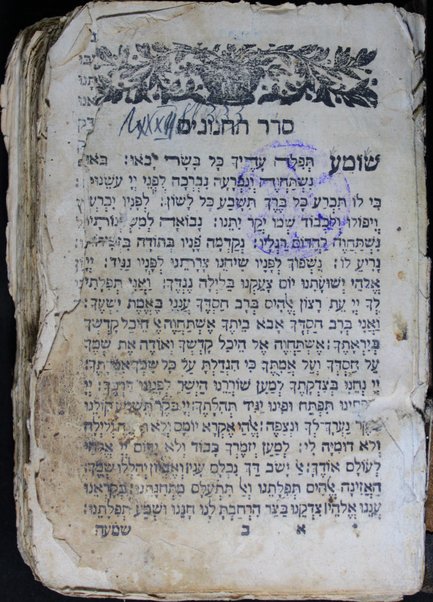 סדר תחנונים
שומע תפלה עדיך כל בשר יבאו: בואו
נשתחוה ונכרעה נברכה לפני יי עשנו:
כי לו תכרע כל ברך תשבע כל לשון: לפניו יכרעו
ויפולו ולכבוד שמו יקר יתנו: נבואה למשכנותיו
נשתחוה להדום רגליו: נקדמה פניו בתודה בזמירות
נריע לו: נשפוך לפניו שיחנו צרתנו לפניו נגיד: יי
אלהי ישועתנו יום צעקנו בלילה נגדך: ואני תפלתי
לך יי עת רצון אלהים ברב חסדך ענני באמת ישעך:
ואני ברב חסדך אבא ביתך אשתחוה אל היכל קדשך
ביראתך: אשתחוה אל היכל קדשך ואודה את שמך
על חסדך ועל אמתך כי הגדלת על כל שמך אמרתך:
יי נחנו בצדקתך למען שוררנו הישר לפנינו דרכך: יי
שפתינו תפתח ופינו יגיד תהלתך: יי בקר תשמע קולנו
בקר נערך לך ונצפה: אלהי אקרא יומם ולא תענה ולילה
ולא דומיה לי: למען יזמרך כבוד ולא ידום יי אלהי
לעולם אודך: אל ישוב דך נכלם עני ואביון יהללו שמך:
האזינה אלהים תפלתנו ואל תתעלם מתחנתנו: בקראנו
עננו אלהי צדקנו בצר הרחבת לנו חננו ושמע תפלתנו:
א ב שמעה